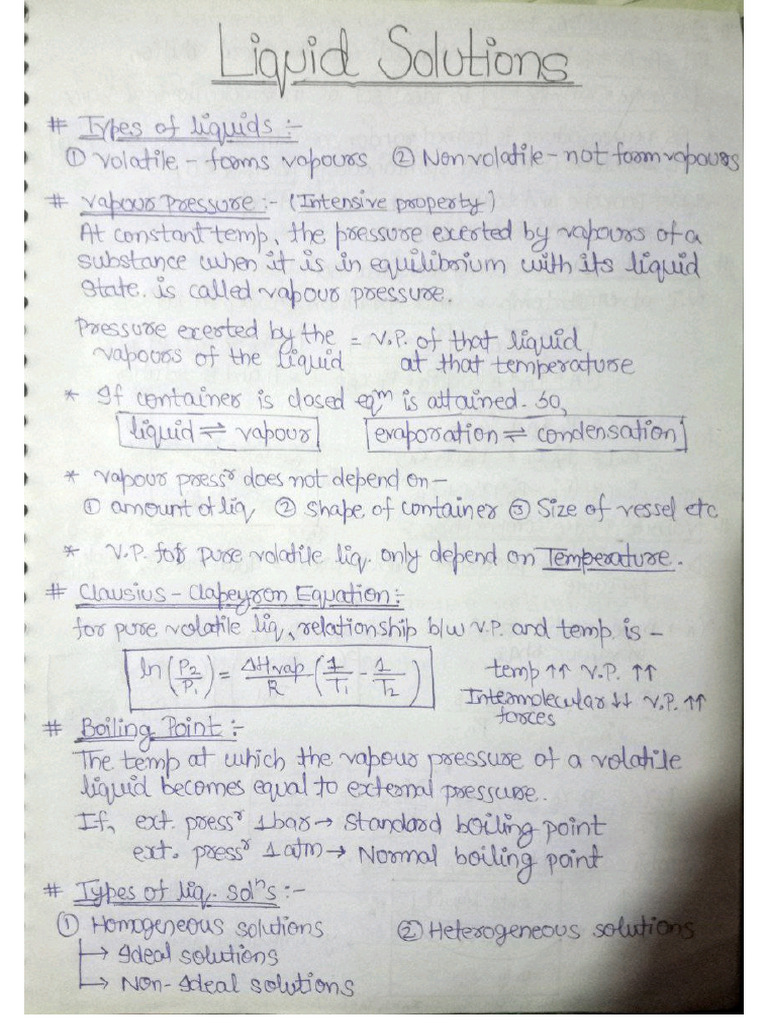 Liquid Solutions
# Types of liquids :-
① Volatile - forms vapours ② Non volatile - not form vapours
# Vapour Pressure :- (Intensive property)
At constant temp, the pressure exerted by vapours of a
substance when it is in equilibrium with its liquid
state. is called vapour pressure.
Pressure exerted by the = V.P. of that liquid
vapours of the liquid at that temperature
* If container is closed eqᵐ is attained. So,
liquid ⇌ vapour evaporation ⇌ condensation
* Vapour pressʳ does not depend on -
① amount of liq ② Shape of container ③ Size of vessel etc
* V.P. for pure volatile liq. only depend on Temperature.
# Clausius - Clapeyron Equation :-
for pure volatile liq, relationship b/w V.P. and temp is -
ln(P₂/P₁) = ΔHvap/R (1/T₁ - 1/T₂) temp ↑↑ V.P. ↑↑
Intermolecular ↓↓ V.P. ↑↑
forces
# Boiling Point :-
The temp at which the vapour pressure of a volatile
liquid becomes equal to external pressure.
If, ext. pressʳ 1bar → Standard boiling point
ext. pressʳ 1atm → Normal boiling point
# Types of liq. solⁿs :-
① Homogeneous solutions ② Heterogeneous solutions
↳ Ideal solutions
↳ Non-Ideal solutions